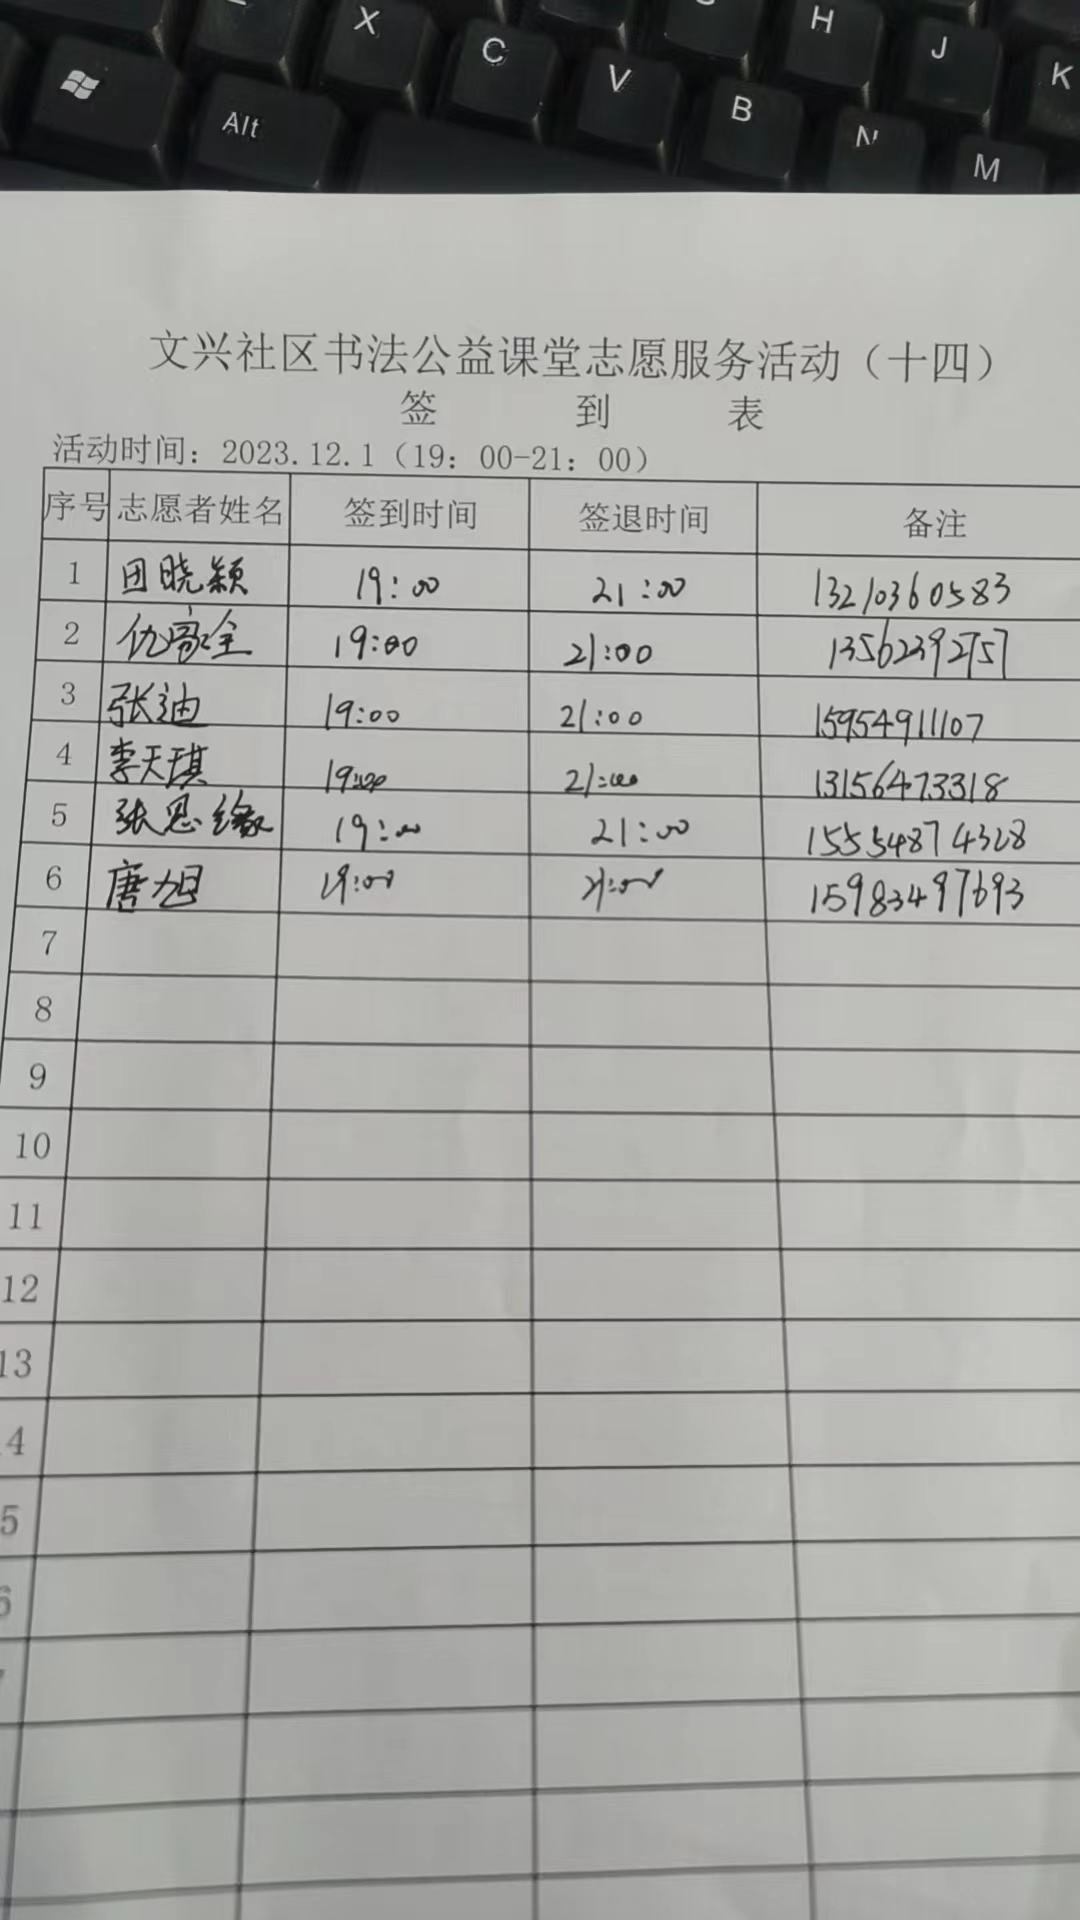 X C V B H N J M K
Alt
文兴社区书法公益课堂志愿服务活动（十四）
签 到 表
活动时间：2023.12.1（19：00-21：00）
序号 志愿者姓名 签到时间 签退时间 备注
1 田晓颖 19:00 21:00 13210360583
2 仇家全 19:00 21:00 13562392757
3 张迪 19:00 21:00 15954911107
4 李天琪 19:00 21:00 13156473318
5 张恩缘 19:00 21:00 15554874328
6 唐旭 19:00 21:00 15983497693
7
8
9
10
11
12
13
4
5
6